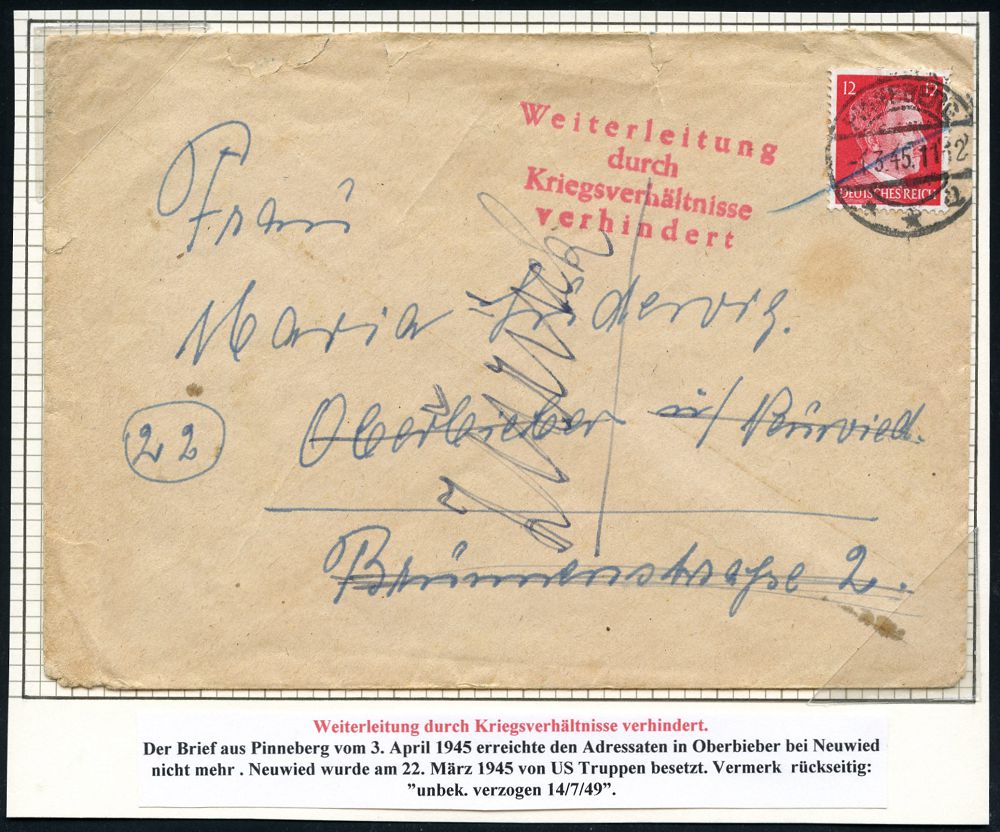 12 12
DEUTSCHES REICH
3.45.11
Weiterleitung
durch
Kriegsverhältnisse
verhindert
Frau
Maria
22
Oberbieber ü/ Neuwied.
Zurück
Brunnenstraße 2.
Weiterleitung durch Kriegsverhältnisse verhindert.
Der Brief aus Pinneberg vom 3. April 1945 erreichte den Adressaten in Oberbieber bei Neuwied
nicht mehr . Neuwied wurde am 22. März 1945 von US Truppen besetzt. Vermerk rückseitig:
”unbek. verzogen 14/7/49”.